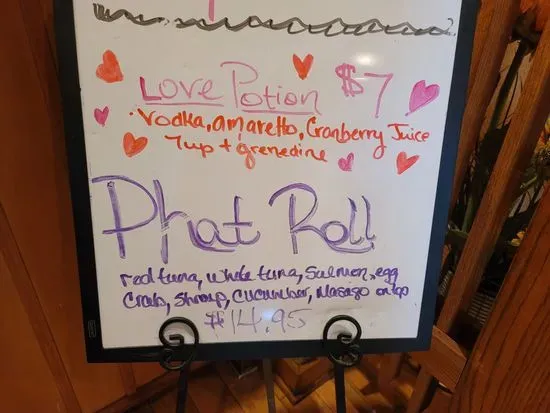 Love Potion $7
Vodka, amaretto, Cranberry Juice
7up + grenedine
Phat Roll
red tuna, white tuna, Salmon, egg
Crab, Shrimp, Cucumber, Masago on top
$14.95